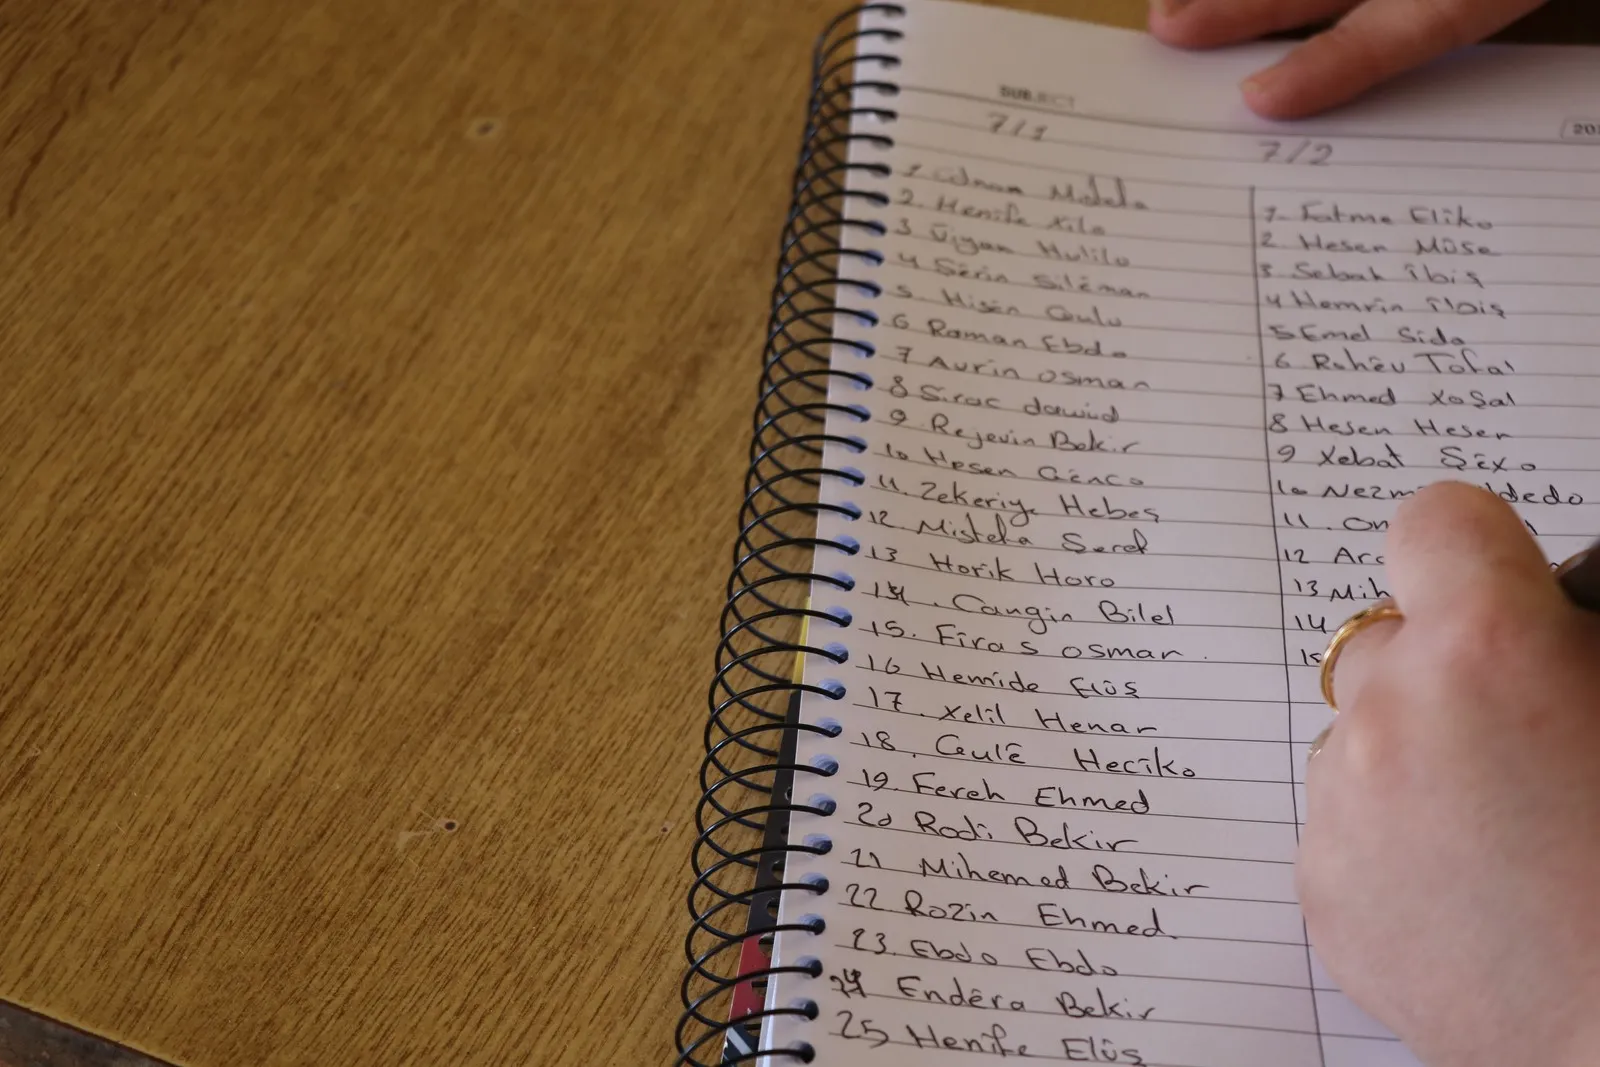 SUBJECT
7/1
1 Adnan Mistefa
2. Henife Xilo
3 Viyan Hulilo
4 Sêrin Silêman
5. Hisên Culu
6 Raman Ebdo
7 Avrin osman
8 Sirac dawud
9. Rejevin Bekir
10 Hesen Cênco
11. Zekeriye Hebeş
12. Mistefa Şeref
13 Horik Horo
14. Cangin Bilel
15. Firas osman.
16 Hemide Elûş
17. Xelil Henar
18. Culê Hecîko
19. Fereh Ehmed
20 Rodi Bekir
21 Mihemed Bekir
22 Rozin Ehmed.
23. Ebdo Ebdo
24 Endêra Bekir
25 Henife Elûş
7/2
1. Fatme Elîko
2 Hesen Mûse
3 Sebah îbiş
4 Hemrin îbiş
5 Emel Sido
6 Rohêv Tofal
7 Ehmed Xoşal
8 Hesen Hesen
9 Xebat Şêxo
10
11.
12
13
14
15